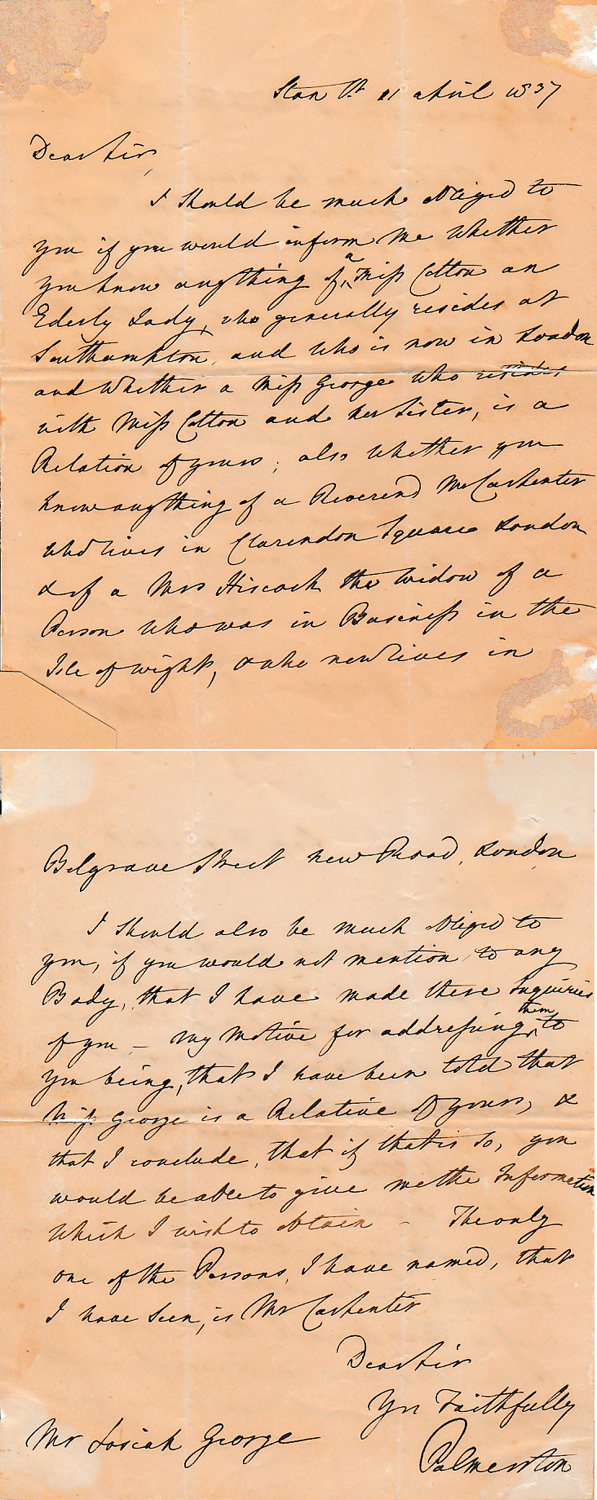 Stan St 11 April 1837
Dear Sir,
I should be much obliged to
you if you would inform me whether
you know anything of a Miss Cotton an
Ederly Lady, who generally resides at
Southampton, and who is now in London
and whether a Miss George who resides
with Miss Cotton and her Sister, is a
Relation of yours; also whether you
know anything of a Reverend Mr Carpenter
who lives in Clarendon Square London
& of a Mrs Hiscock the widow of a
Person who was in Business in the
Isle of Wight, & who now lives in
Belgrave Street New Road, London
I should also be much obliged to
you, if you would not mention to any
Body, that I have made these Inquiries
of you – my motive for addressing them to
you being, that I have been told that
Miss George is a Relative of yours, &
that I conclude, that if that is so, you
would be able to give me the Information
which I wish to obtain – The only
one of the Persons, I have named, that
I have seen, is Mr Carpenter
Dear Sir
Yrs Faithfully
Mr Josiah George Palmerston